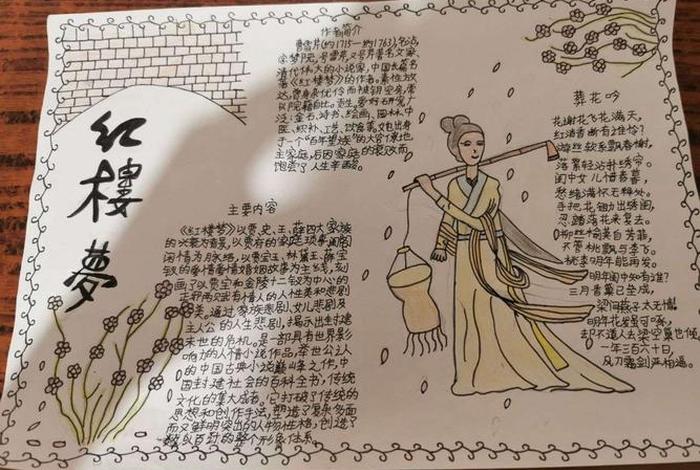 红樓夢
作者简介
曹雪芹(约1715—约1763),名沾,
字梦阮,号雪芹,又号芹溪、芹圃,
清代伟大的小说家,中国长篇名
著《红楼梦》的作者。素性放
达,
院籍自比。一生爱好研究广
泛:金石、诗书、绘画、园林、中
医、织补、工艺、饮食等
于一个“百年望族”的大官僚地
主家庭,后因家庭的衰败而
饱尝了人生辛酸。
主要内容
《红楼梦》以贾、史、王、薛四大家族
的兴衰为背景,以贾府的家庭琐事、闺阁
闲情为脉络,以贾宝玉、林黛玉、薛宝
钗的爱情婚姻故事为主线,刻
画了以贾宝玉和金陵十二钗为中心的
正邪两赋有情人的人性美和悲剧
美。通过家族悲剧、女儿悲剧及
主人公的人生悲剧,揭示出封建
末世的危机。是一部具有世界影
响力的人情小说作品,举世公认
的中国古典小说巅峰之作,中
国封建社会的百科全书,传统
文化的集大成者。它打破了传统的
思想和创作手法,塑造了复杂多面
而又鲜明突出的人物性格,创造了
数以百计的整个形象体系。
葬花吟
花谢花飞花满天,
红消香断有谁怜?
游丝软系飘春榭,
落絮轻沾扑绣帘。
闺中女儿惜春暮,
愁绪满怀无释处。
手把花锄出绣闺,
忍踏落花来复去。
柳丝榆荚自芳菲,
不管桃飘与李飞。
桃李明年能再发,
明年闺中知有谁?
三月香巢已垒成,
梁间燕子太无情!
明年花发虽可啄,
却不道人去梁空巢也倾。
一年三百六十日,
风刀霜剑严相逼。